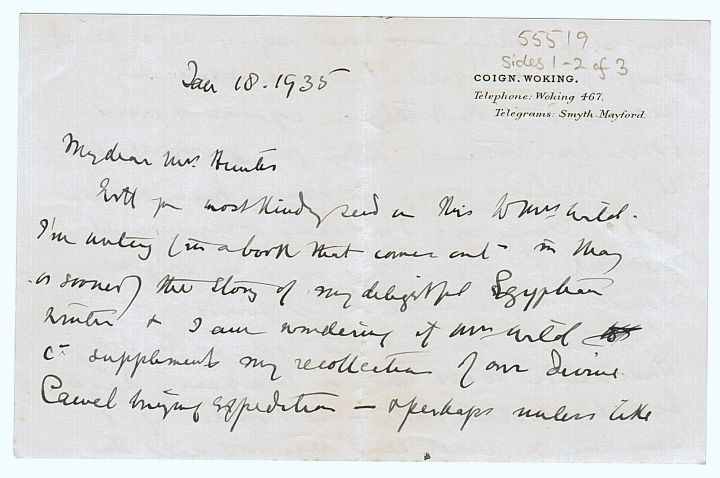 55519
Sides 1-2 of 3
COIGN. WOKING.
Telephone: Woking 467.
Telegrams: Smyth. Mayford.
Jan 18. 1935
My dear Mrs. Hunter
Will you most kindly send on this to Mrs Wild.
I'm writing (in a book that comes out in May
or sooner) the story of my delightful Egyptian
winter & I am wondering if Mrs Wild
cd. supplement my recollection of our divine
Camel buying expedition — & perhaps unless like